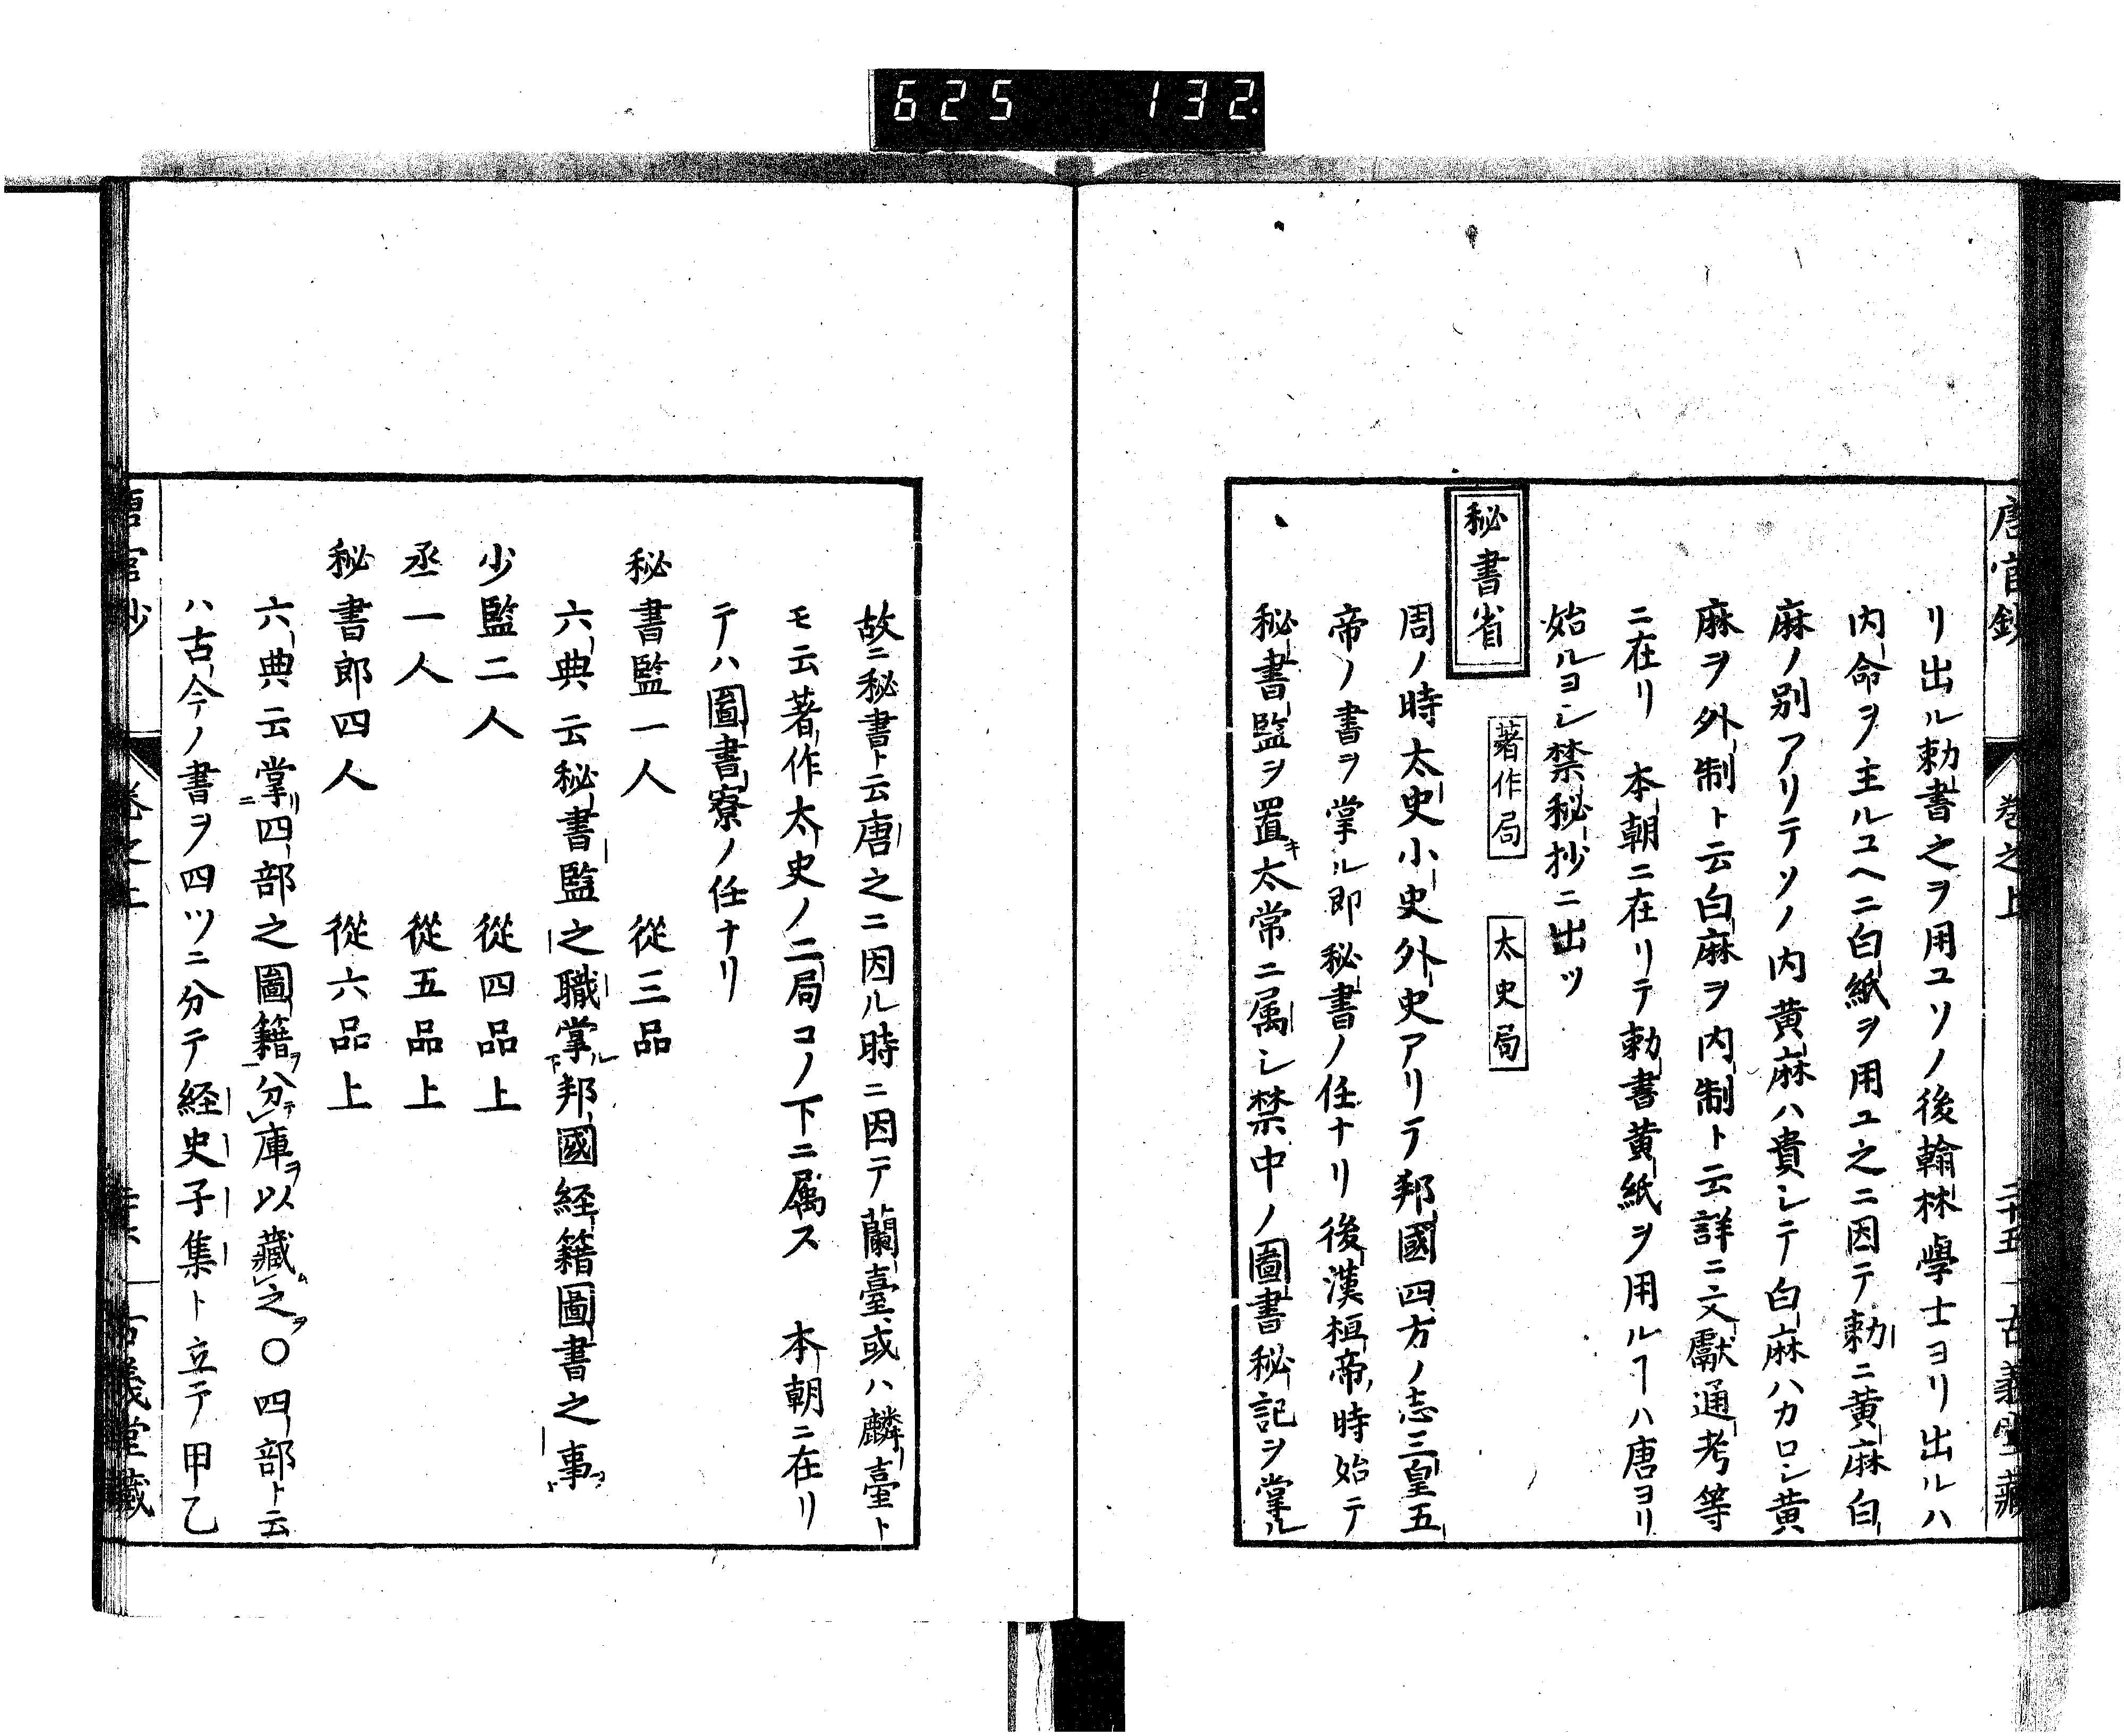 625 132
唐官鈔 巻之上 二十五 古義堂藏
リ出ル勅書之ヲ用ユソノ後翰林學士ヨリ出ルハ
内命ヲ主ルユヘニ白紙ヲ用ユ之ニ因テ勅ニ黄麻白
麻ノ別アリテソノ内黄麻ハ貴シテ白麻ハカロシ黄
麻ヲ外制ト云白麻ヲ内制ト云詳ニ文獻通考等
ニ在リ 本朝ニ在リテ勅書黄紙ヲ用ルヿハ唐ヨリ
始ルヨシ禁秘抄ニ出ツ
秘書省 著作局 太史局
周ノ時太史小史外史アリテ邦國四方ノ志三皇五
帝ノ書ヲ掌ル即秘書ノ任ナリ後漢桓帝時始テ
秘書監ヲ置キ太常ニ属シ禁中ノ圖書秘記ヲ掌ル
故ニ秘書ト云唐之ニ因ル時ニ因テ蘭臺或ハ麟臺ト
モ云著作太史ノ二局コノ下ニ属ス 本朝ニ在リ
テハ圖書寮ノ任ナリ
秘書監一人 從三品
六典云秘書監之職掌ル邦國経籍圖書之事
少監二人 從四品上
丞一人 從五品上
秘書郎四人 從六品上
六典云掌リ四部之圖籍ヲ分テ庫ヲ以藏ム之ヲ〇四部ト云
ハ古今ノ書ヲ四ツニ分テ経史子集ト立テ甲乙
唐官鈔 巻之上 古義堂藏